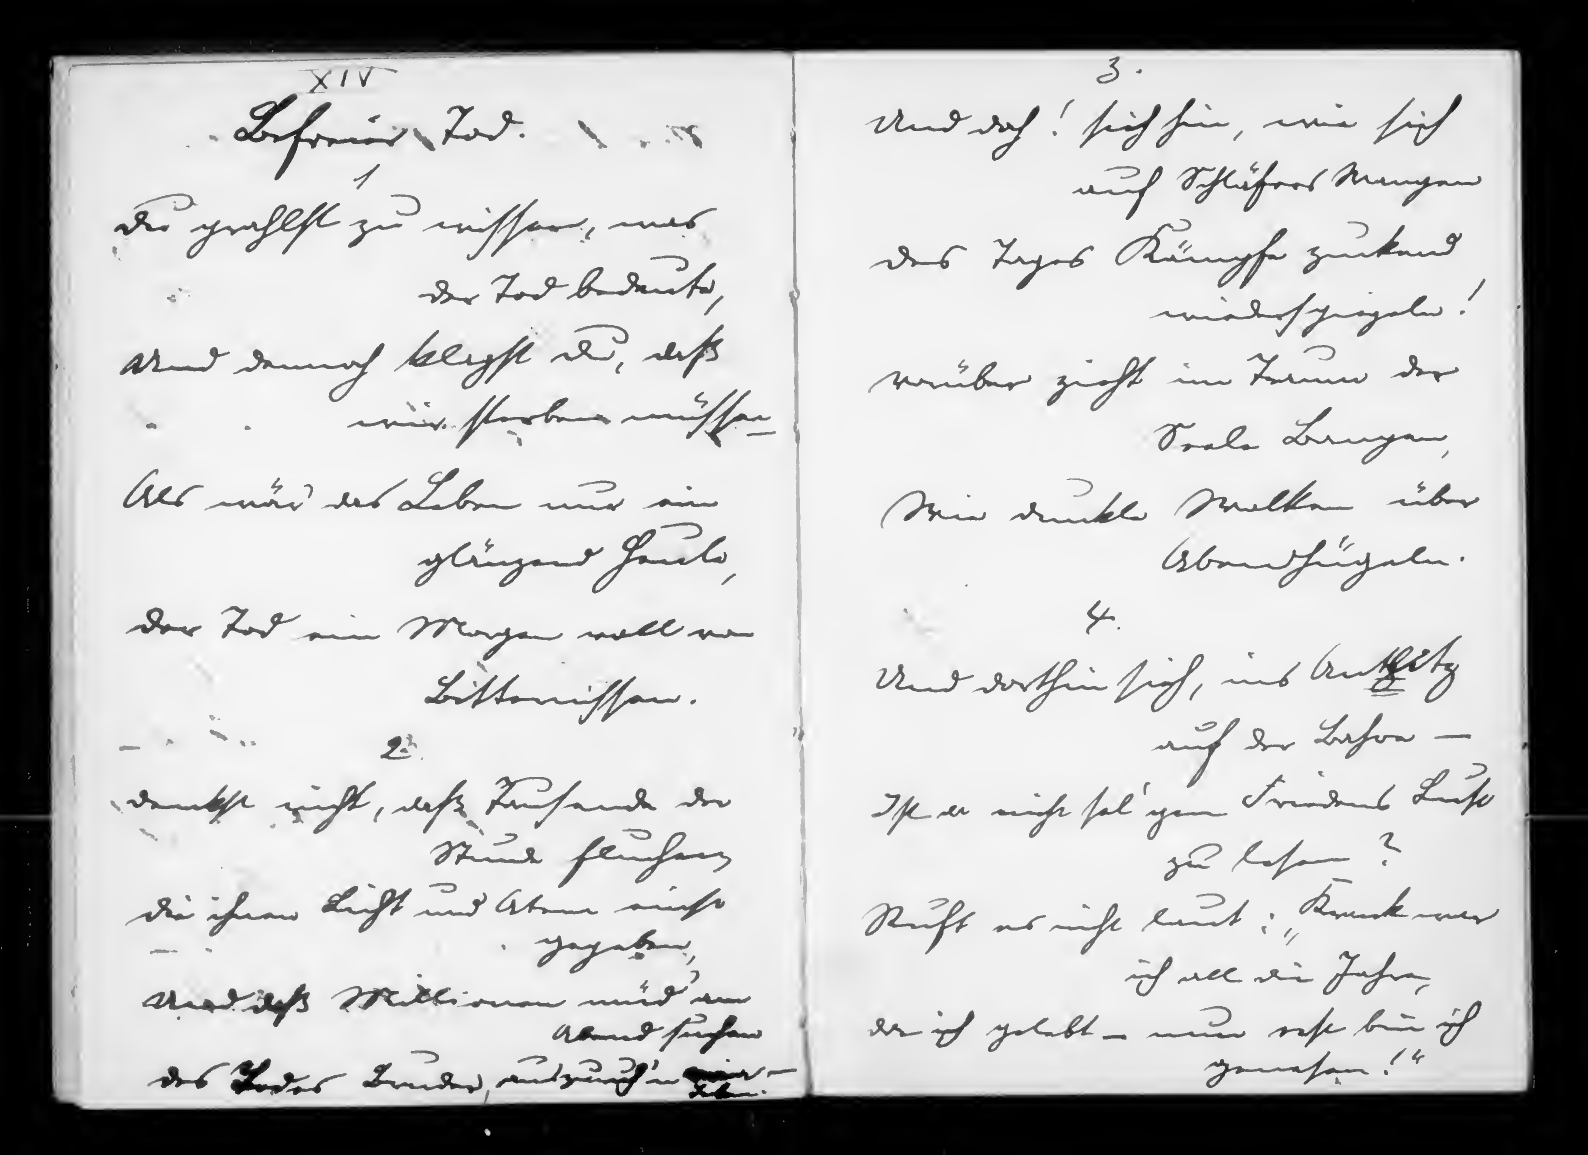 XIV
Befreier Tod.
1
Du prahlst zu wissen, was
der Tod bedeute,
Und dennoch klagst du, daß
wir sterben müssen –
Als wär' das Leben nur ein
glänzend Heute,
Der Tod ein Morgen voll von
Bitternissen.
2.
Denkst nicht, daß Tausende der
Stunde fluchen,
Die ihnen Licht und Atem einst
gegeben,
Und daß Millionen müd' am
Abend suchen
Des Todes Bruder,
3.
Und doch! sieh hin, wie sich
auf Schläfers Wangen
Des Tages Kämpfe zuckend
wiederspiegeln!
Vorüber zieht im Traum der
Seele Bangen,
Wie dunkle Wolken über
Abendhügeln.
4.
Und dorthin sieh, ins Antlitz
auf der Bahre –
Ist er nicht sel'gen Friedens Lust
zu lesen?
Ruft es nicht laut: „Krank war
ich all die Jahre,
Da ich gelebt – nun erst bin ich
genesen!“